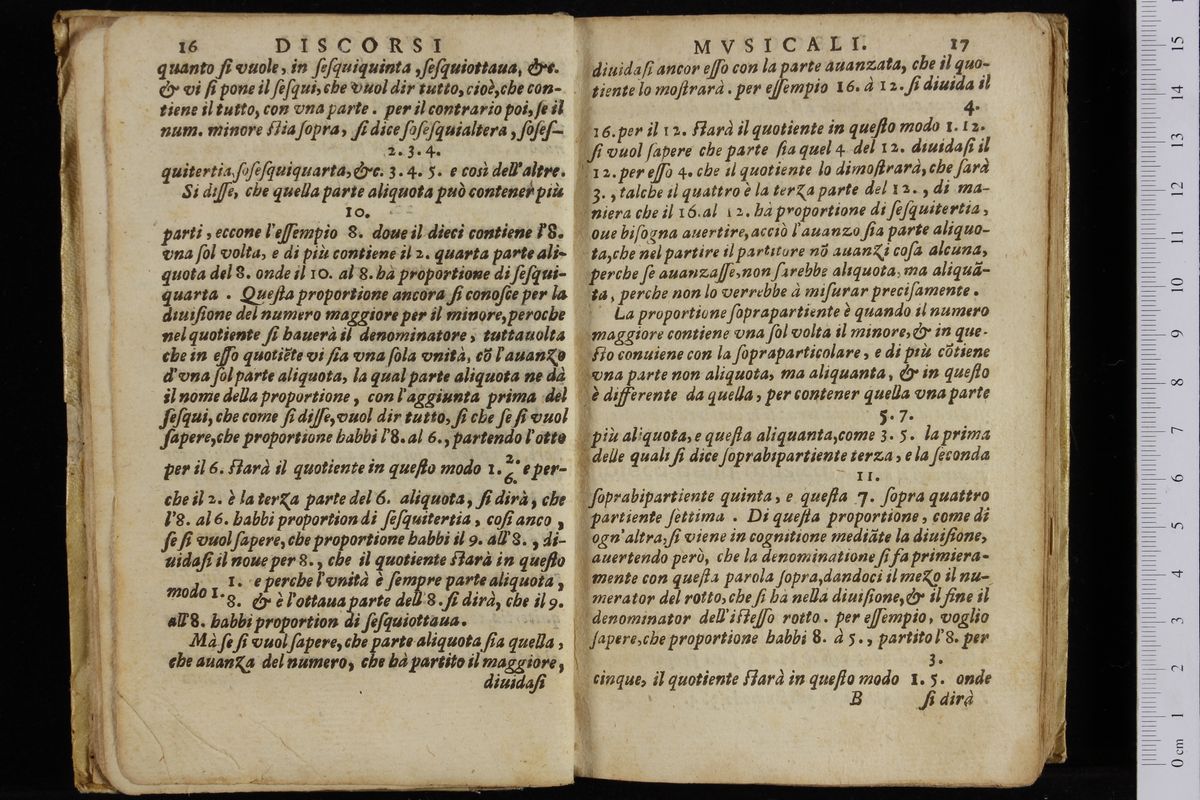 16 DISCORSI
quanto ſi vuole, in ſeſquiquinta, ſeſquiottaua, &c.
& vi ſi pone il ſeſqui, che vuol dir tutto, cioè, che con-
tiene il tutto, con vna parte. per il contrario poi, ſe il
num. minore ſtia ſopra, ſi dice ſoſeſquialtera, ſoſeſ-
2. 3. 4.
quitertia, ſoſeſquiquarta, &c. 3. 4. 5. e così dell'altre.
Si diſſe, che quella parte aliquota può contener più
10.
parti, eccone l'eſſempio 8. doue il dieci contiene l'8.
vna ſol volta, e di più contiene il 2. quarta parte ali-
quota del 8. onde il 10. al 8. hà proportione di ſeſqui-
quarta. Queſta proportione ancora ſi conoſce per la
diuiſione del numero maggiore per il minore, peroche
nel quotiente ſi hauerà il denominatore, tuttauolta
che in eſſo quotiẽte vi ſia vna ſola vnità, cõ l'auanzo
d'vna ſol parte aliquota, la qual parte aliquota ne dà
il nome della proportione, con l'aggiunta prima del
ſeſqui, che come ſi diſſe, vuol dir tutto, ſi che ſe ſi vuol
ſapere, che proportione habbi l'8. al 6., partendo l'otto
per il 6. ſtarà il quotiente in queſto modo 1. 2. 6. e per-
che il 2. è la terza parte del 6. aliquota, ſi dirà, che
l'8. al 6. habbi proportion di ſeſquitertia, coſi anco,
ſe ſi vuol ſapere, che proportione habbi il 9. all'8., di-
uidaſi il noue per 8., che il quotiente ſtarà in queſto
modo 1. 1. 8. e perche l'vnità è ſempre parte aliquota,
& è l'ottaua parte dell'8. ſi dirà, che il 9.
all'8. habbi proportion di ſeſquiottaua.
Mà ſe ſi vuol ſapere, che parte aliquota ſia quella,
che auanza del numero, che hà partito il maggiore,
diuidaſi
MVSICALI. 17
diuidaſi ancor eſſo con la parte auanzata, che il quo-
tiente lo moſtrarà. per eſſempio 16. à 12. ſi diuida il
4.
16. per il 12. ſtarà il quotiente in queſto modo 1. 12.
ſi vuol ſapere che parte ſia quel 4 del 12. diuidaſi il
12. per eſſo 4. che il quotiente lo dimoſtrarà, che ſarà
3., talche il quattro è la terza parte del 12., di ma-
niera che il 16. al 12. hà proportione di ſeſquitertia,
oue biſogna auertire, acciò l'auanzo ſia parte aliquo-
ta, che nel partire il partitore nõ auanzi coſa alcuna,
perche ſe auanzaſſe, non ſarebbe aliquota, ma aliquã-
ta, perche non lo verrebbe à miſurar preciſamente.
La proportione ſoprapartiente è quando il numero
maggiore contiene vna ſol volta il minore, & in que-
ſto conuiene con la ſopraparticolare, e di più cõtiene
vna parte non aliquota, ma aliquanta, & in queſto
è differente da quella, per contener quella vna parte
5. 7.
più aliquota, e queſta aliquanta, come 3. 5. la prima
delle quali ſi dice ſoprabipartiente terza, e la ſeconda
11.
ſoprabipartiente quinta, e queſta 7. ſopra quattro
partiente ſettima. Di queſta proportione, come di
ogn'altra, ſi viene in cognitione mediãte la diuiſione,
auertendo però, che la denominatione ſi fa primiera-
mente con queſta parola ſopra, dandoci il mezo il nu-
merator del rotto, che ſi hà nella diuiſione, & il fine il
denominator dell'iſteſſo rotto. per eſſempio, voglio
ſapere, che proportione habbi 8. à 5., partito l'8. per
3.
cinque, il quotiente ſtarà in queſto modo 1. 5. onde
B ſi dirà
0 cm 1 2 3 4 5 6 7 8 9 10 11 12 13 14 15